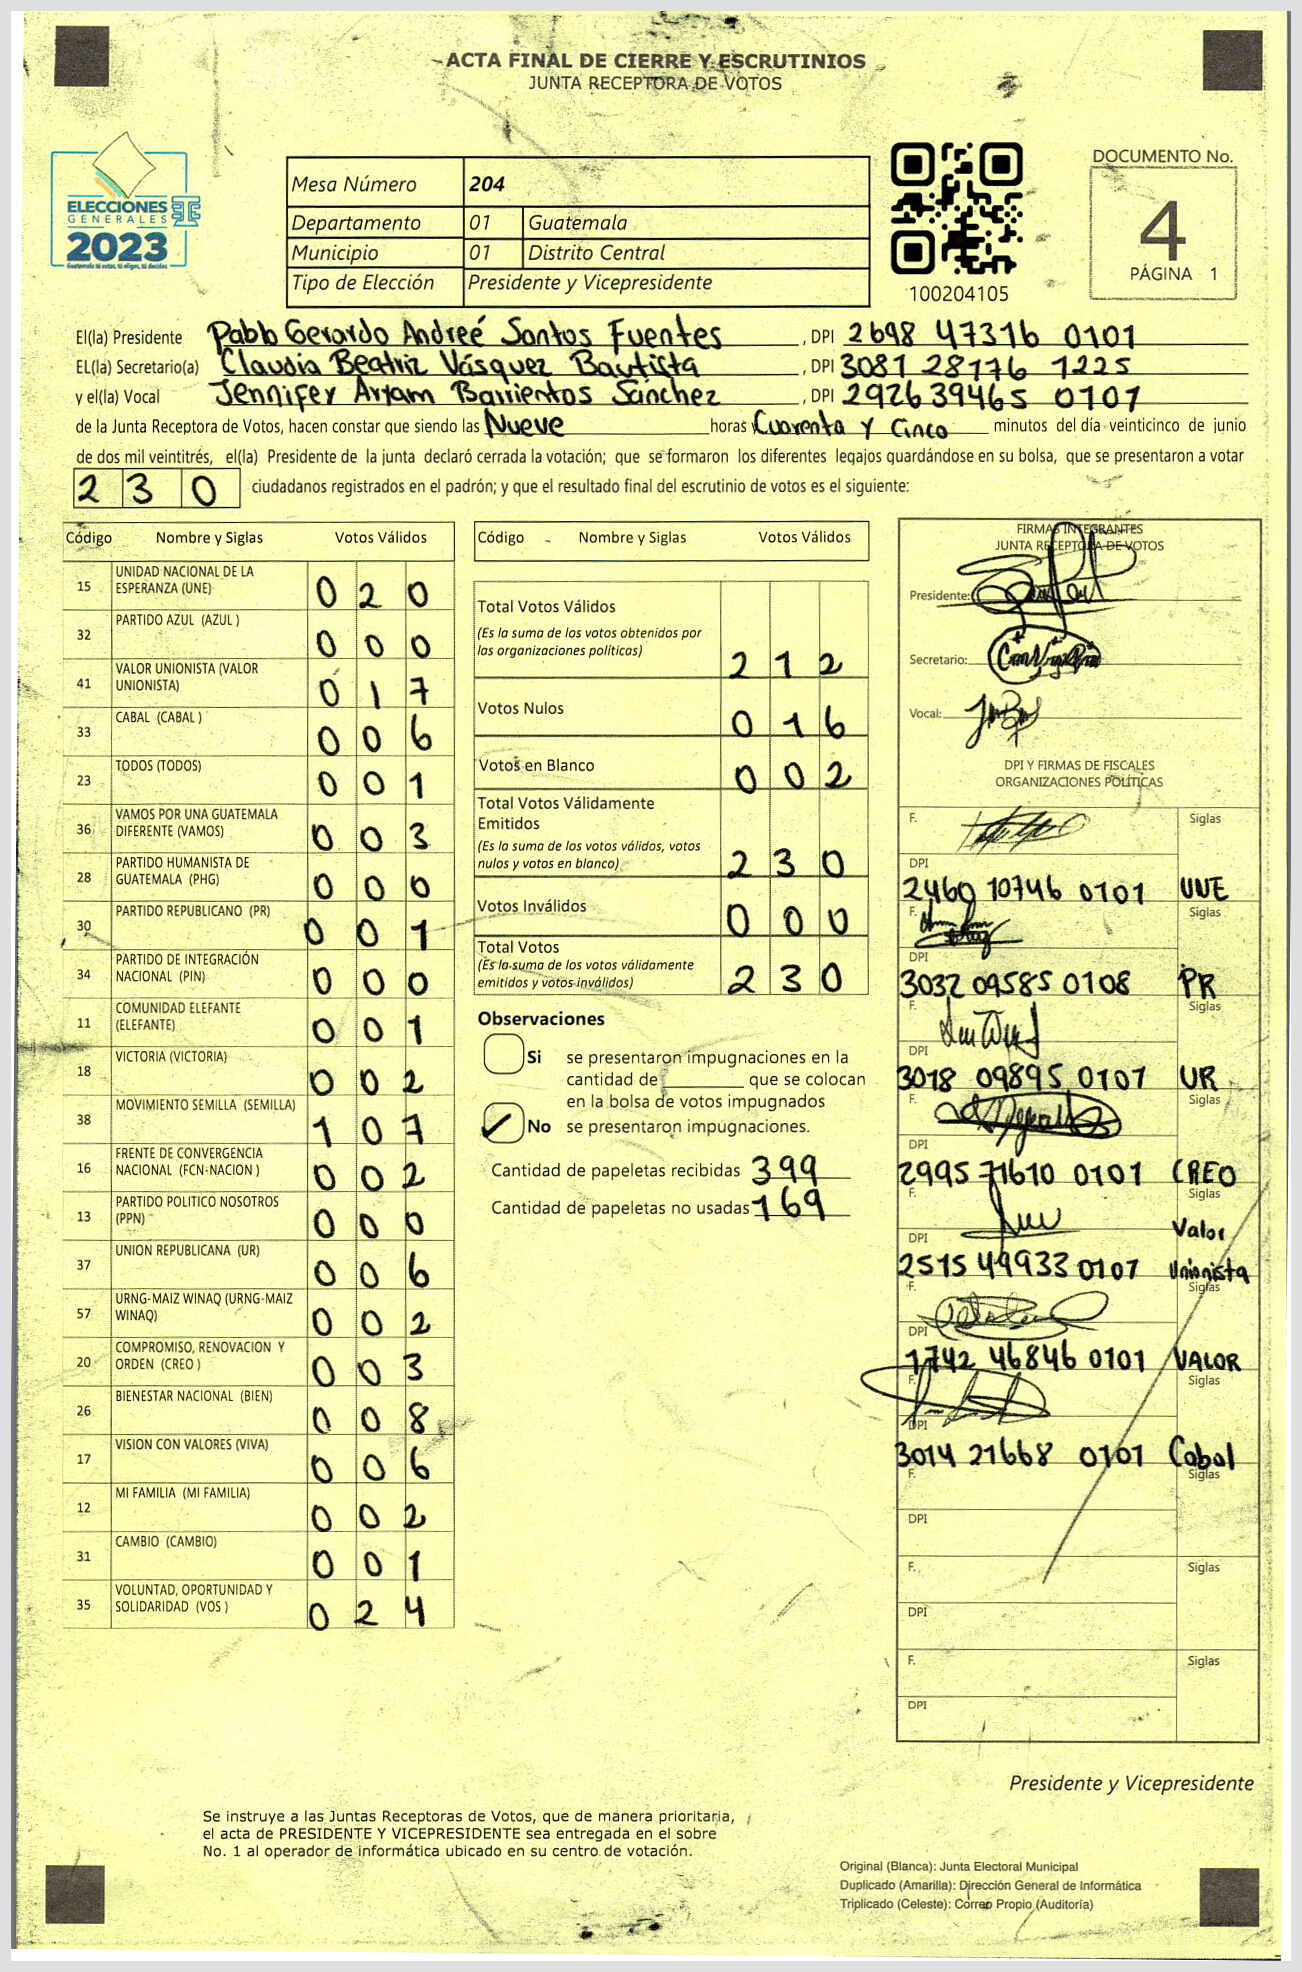 ACTA FINAL DE CIERRE Y ESCRUTINIOS
JUNTA RECEPTORA DE VOTOS
ELECCIONES
GENERALES
2023
Guatemala tú votas, tú eliges, tú decides
Mesa Número 204
Departamento 01 Guatemala
Municipio 01 Distrito Central
Tipo de Elección Presidente y Vicepresidente
100204105
DOCUMENTO No.
4
PÁGINA 1
El(la) Presidente Pablo Gerardo Andreé Santos Fuentes, DPI 2698 47316 0101
EL(la) Secretario(a) Claudia Beatriz Vásquez Bautista, DPI 3081 28176 1225
y el(la) Vocal Jennifer Barrientos Sánchez, DPI 2926 39465 0101
de la Junta Receptora de Votos, hacen constar que siendo las Nueve horas Cuarenta y Cinco minutos del día veinticinco de junio
de dos mil veintitrés, el(la) Presidente de la junta declaró cerrada la votación; que se formaron los diferentes legajos guardándose en su bolsa, que se presentaron a votar
230 ciudadanos registrados en el padrón; y que el resultado final del escrutinio de votos es el siguiente:
Código Nombre y Siglas Votos Válidos
15 UNIDAD NACIONAL DE LA ESPERANZA (UNE) 0 2 0
32 PARTIDO AZUL (AZUL ) 0 0 0
41 VALOR UNIONISTA (VALOR UNIONISTA) 0 1 7
33 CABAL (CABAL ) 0 0 6
23 TODOS (TODOS) 0 0 1
36 VAMOS POR UNA GUATEMALA DIFERENTE (VAMOS) 0 0 3
28 PARTIDO HUMANISTA DE GUATEMALA (PHG) 0 0 0
30 PARTIDO REPUBLICANO (PR) 0 0 1
34 PARTIDO DE INTEGRACIÓN NACIONAL (PIN) 0 0 0
11 COMUNIDAD ELEFANTE (ELEFANTE) 0 0 1
18 VICTORIA (VICTORIA) 0 0 2
38 MOVIMIENTO SEMILLA (SEMILLA) 1 0 7
16 FRENTE DE CONVERGENCIA NACIONAL (FCN-NACION ) 0 0 2
13 PARTIDO POLITICO NOSOTROS (PPN) 0 0 0
37 UNION REPUBLICANA (UR) 0 0 6
57 URNG-MAIZ WINAQ (URNG-MAIZ WINAQ) 0 0 2
20 COMPROMISO, RENOVACION Y ORDEN (CREO ) 0 0 3
26 BIENESTAR NACIONAL (BIEN) 0 0 8
17 VISION CON VALORES (VIVA) 0 0 6
12 MI FAMILIA (MI FAMILIA) 0 0 2
31 CAMBIO (CAMBIO) 0 0 1
35 VOLUNTAD, OPORTUNIDAD Y SOLIDARIDAD (VOS ) 0 2 4
Código Nombre y Siglas Votos Válidos
Total Votos Válidos
(Es la suma de los votos obtenidos por
las organizaciones políticas) 2 1 2
Votos Nulos 0 1 6
Votos en Blanco 0 0 2
Total Votos Válidamente
Emitidos
(Es la suma de los votos válidos, votos
nulos y votos en blanco) 2 3 0
Votos Inválidos 0 0 0
Total Votos
(Es la suma de los votos válidamente
emitidos y votos inválidos) 2 3 0
Observaciones
Si se presentaron impugnaciones en la
cantidad de ________ que se colocan
en la bolsa de votos impugnados
No se presentaron impugnaciones.
Cantidad de papeletas recibidas 399
Cantidad de papeletas no usadas 169
FIRMAS INTEGRANTES
JUNTA RECEPTORA DE VOTOS
Presidente:
Secretario:
Vocal:
DPI Y FIRMAS DE FISCALES
ORGANIZACIONES POLÍTICAS
F. Siglas
DPI
2460 10746 0101 UNE
F. Siglas
DPI
3032 09585 0108 PR
F. Siglas
DPI
3018 09895 0101 UR
F. Siglas
DPI
2995 71610 0101 CREO
F. Siglas
DPI
2515 49933 0101 Valor Unionista
F. Siglas
DPI
1742 46846 0101 VALOR
F. Siglas
DPI
3014 21668 0101 Cabal
F. Siglas
DPI
F. Siglas
DPI
F. Siglas
DPI
Presidente y Vicepresidente
Se instruye a las Juntas Receptoras de Votos, que de manera prioritaria,
el acta de PRESIDENTE Y VICEPRESIDENTE sea entregada en el sobre
No. 1 al operador de informática ubicado en su centro de votación.
Original (Blanca): Junta Electoral Municipal
Duplicado (Amarilla): Dirección General de Informática
Triplicado (Celeste): Correo Propio (Auditoría)